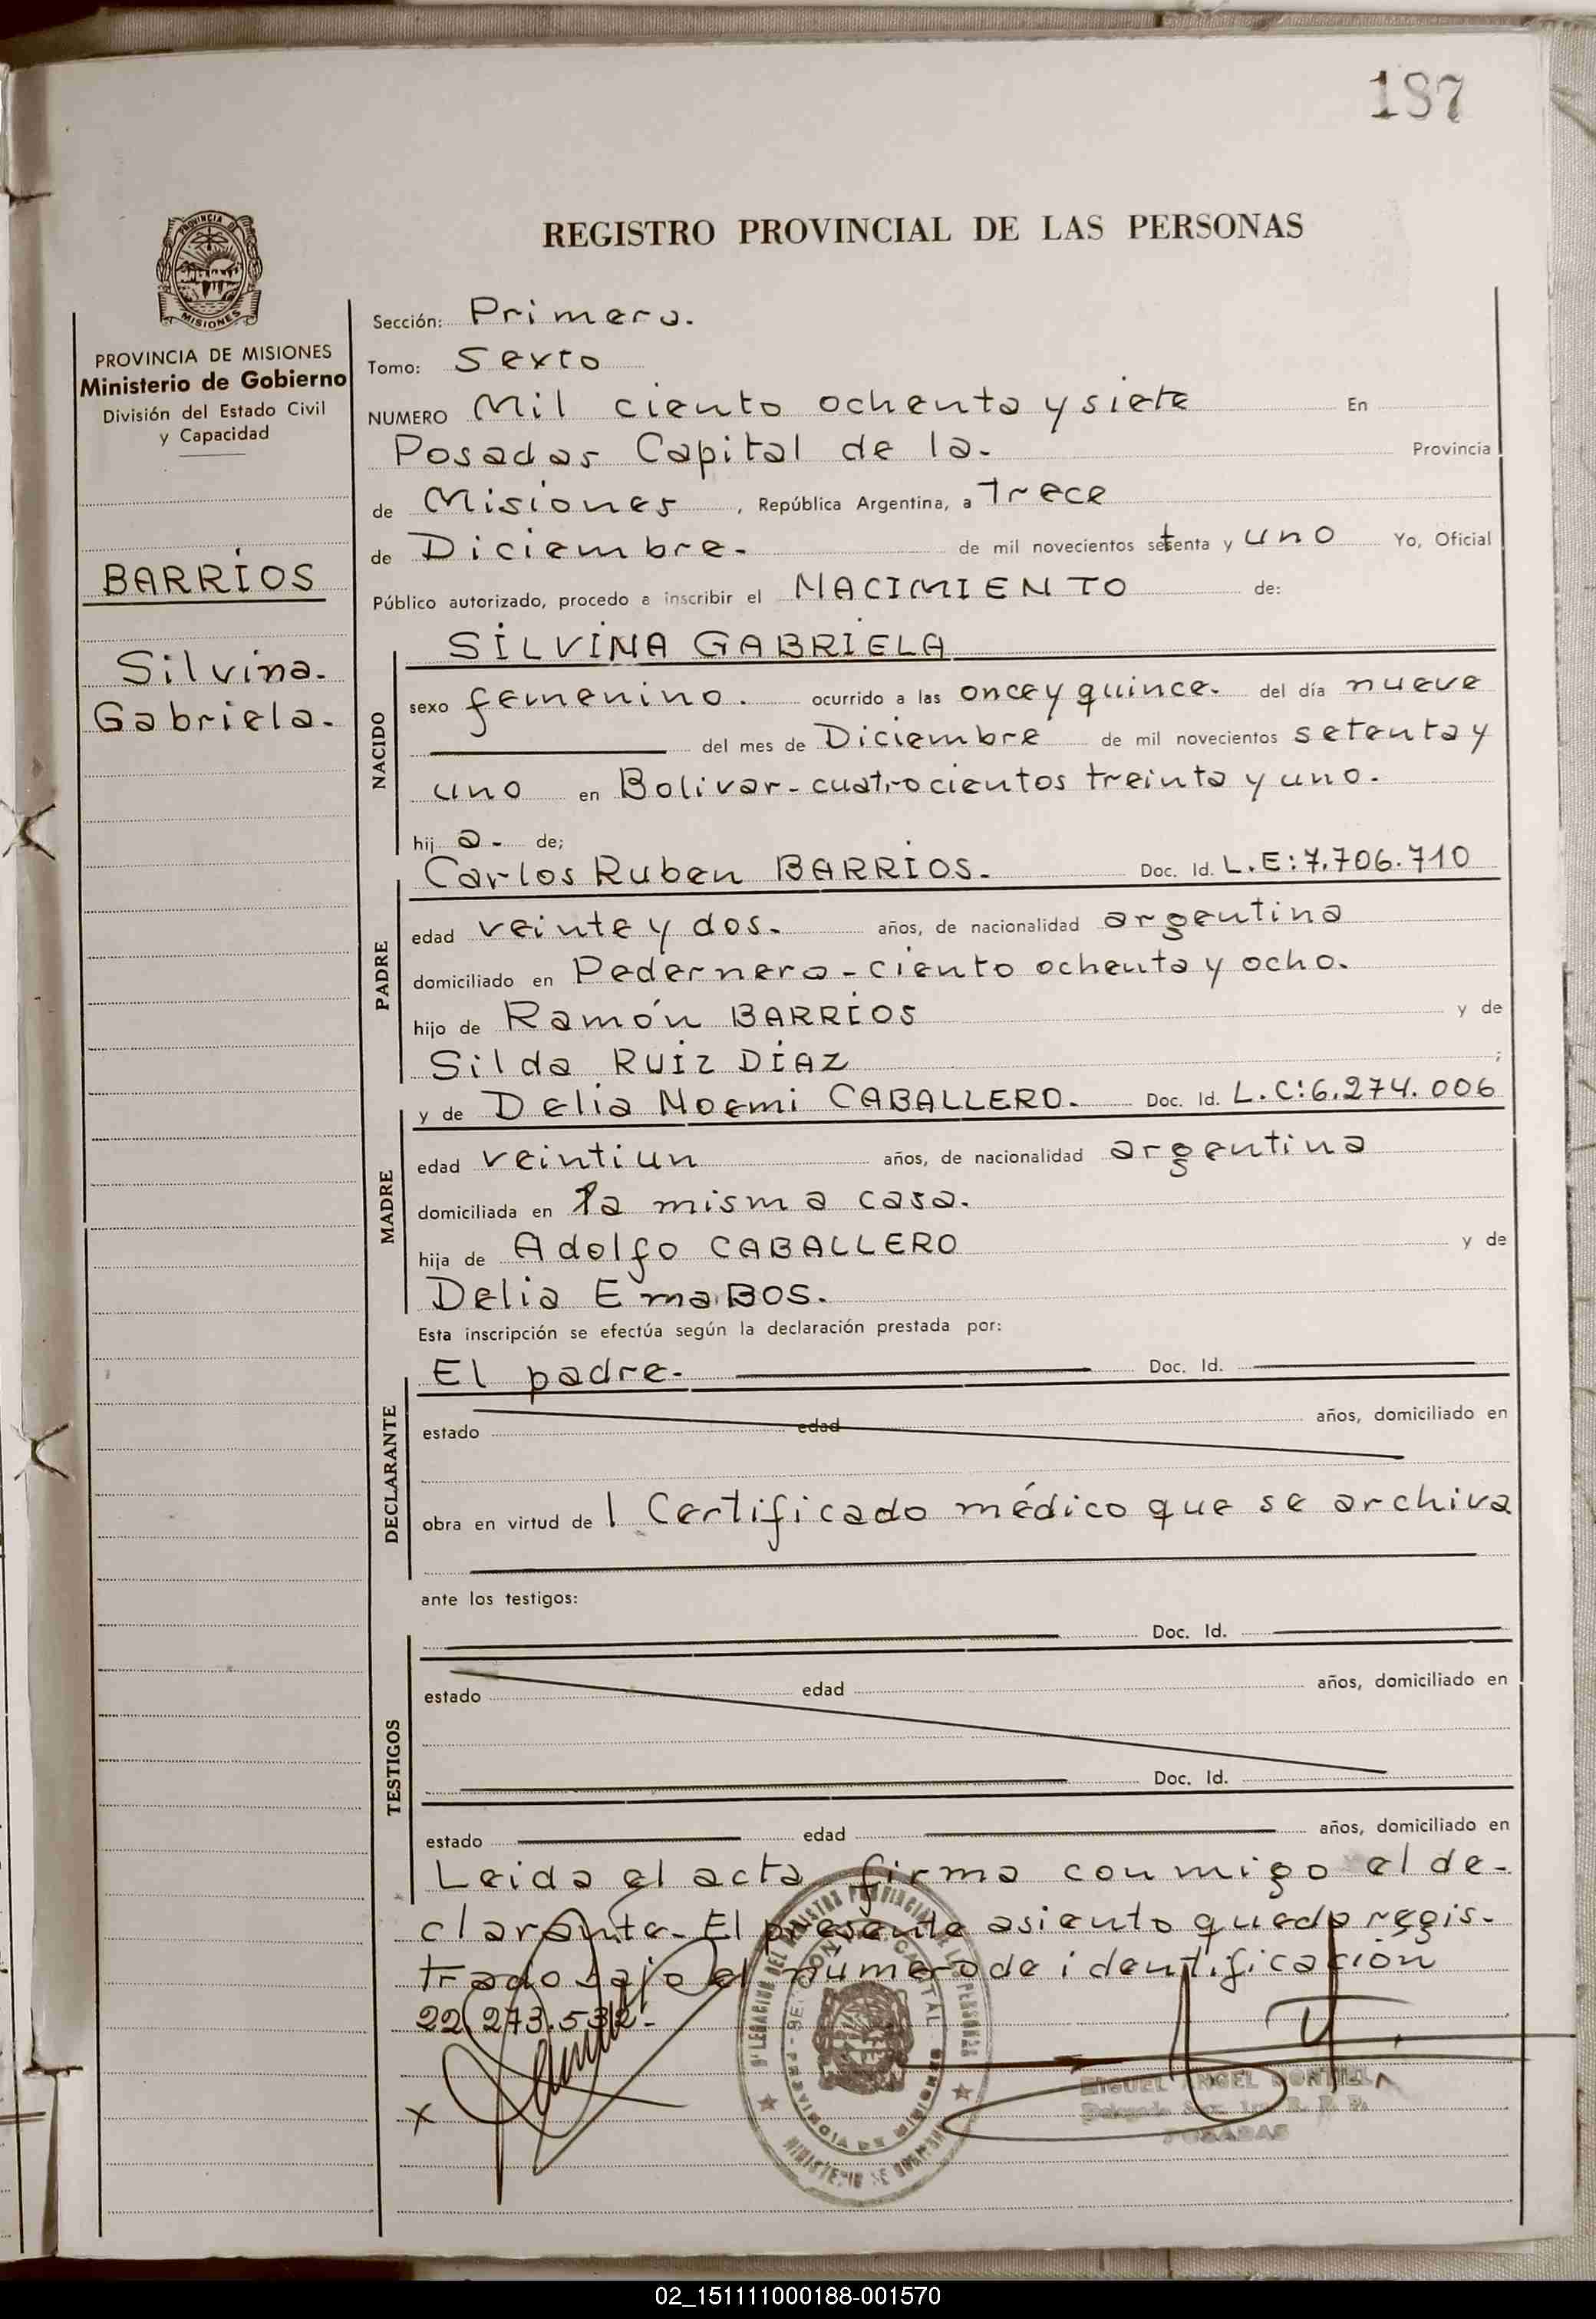 187
REGISTRO PROVINCIAL DE LAS PERSONAS
PROVINCIA DE MISIONES
PROVINCIA DE MISIONES
Ministerio de Gobierno
División del Estado Civil
y Capacidad
BARRIOS
Silvina.
Gabriela.
Sección: Primera.
Tomo: Sexto
NUMERO Mil ciento ochenta y siete En
Posadas Capital de la. Provincia
de Misiones, República Argentina, a Trece
de Diciembre. de mil novecientos setenta y uno Yo, Oficial
Público autorizado, procedo a inscribir el NACIMIENTO de:
NACIDO
SILVINA GABRIELA
sexo femenino. ocurrido a las once y quince. del día nueve
del mes de Diciembre de mil novecientos setenta y
uno en Bolivar-cuatrocientos treinta y uno.
hij a. de;
PADRE
Carlos Ruben BARRIOS. Doc. Id. L.E:7.706.710
edad veinte y dos. años, de nacionalidad argentina
domiciliado en Pedernera-ciento ochenta y ocho.
hijo de Ramón BARRIOS y de
Silda RUIZ DIAZ ;
MADRE
y de Delia Noemi CABALLERO. Doc. Id. L.C:6.274.006
edad veintiun años, de nacionalidad argentina
domiciliada en la misma casa.
hija de Adolfo CABALLERO y de
Delia Ema BOS.
Esta inscripción se efectúa según la declaración prestada por:
DECLARANTE
El padre. Doc. Id.
estado edad años, domiciliado en
obra en virtud de 1 Certificado médico que se archiva
ante los testigos:
TESTIGOS
Doc. Id.
estado edad años, domiciliado en
Doc. Id.
estado edad años, domiciliado en
Leida el acta firma conmigo el de-
clarante. El presente asiento queda regis-
trado bajo el numero de identificación
22.273.532.-
x
MIGUEL ANGEL MONTIEL
POSADAS
02_151111000188-001570